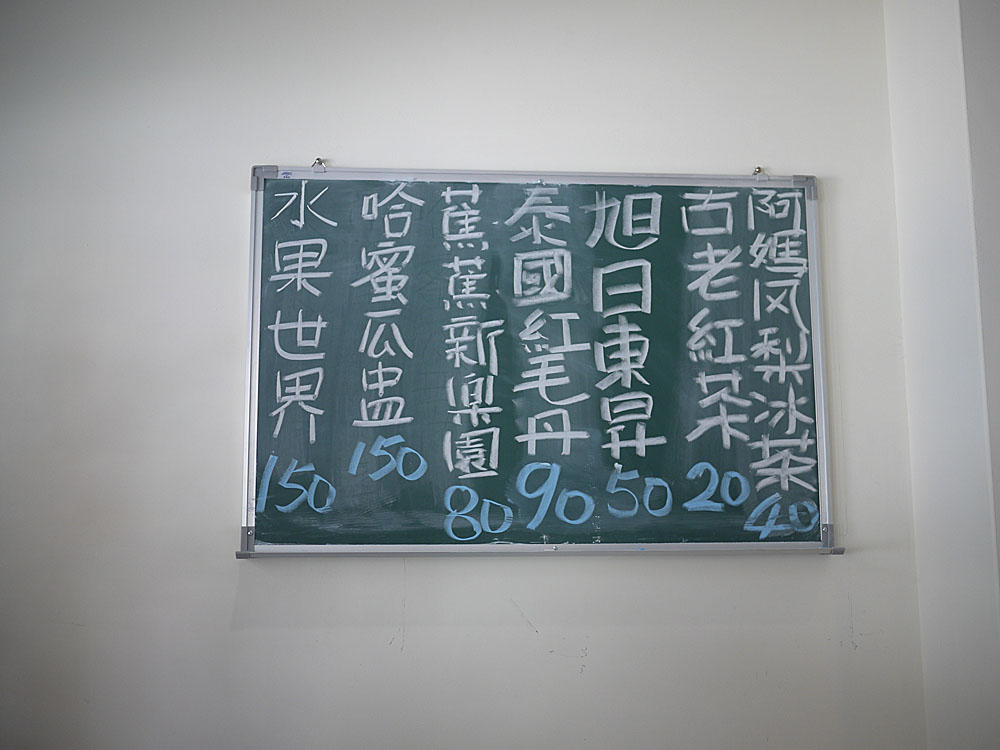 阿媽风梨冰茶 40
古老紅茶 20
旭日東昇 50
泰國紅毛丹 90
蕉蕉新樂園 80
哈蜜瓜盅 150
水果世界 150